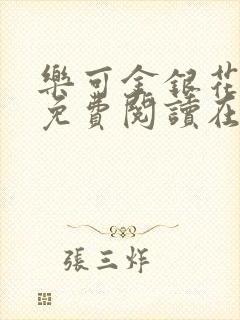 樂可金銀花
免費閱讀在
張三炸